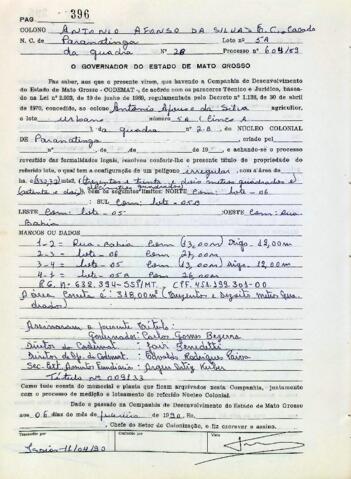 PAG. 396
COLONO Antonio Afonso da Silva B.C. Casado
N. C. de Paranatinga Lote nº 5A
da quadra Nº 2B Processo nº 604/83
O GOVERNADOR DO ESTADO DE MATO GROSSO
Faz saber, aos que a presente virem, que havendo a Companhia de Desenvolvimento
do Estado de Mato Grosso - CODEMAT -, de acôrdo com os pareceres Técnico e Jurídico, baseado
na Lei nº de 19 de junho de decreto nº 1.138, de 30 de abril
de 1970, concedido, ao colono Antonio Afonso da Silva agricultor,
o lote Urbano nº 5A (Cinco A
) da quadra nº 2B. do NÚCLEO COLONIAL
DE Paranatinga
nº de de 19 e achando-se o processo
revestido das formalidades legais, resolveu conferir-lhe o presente título de propriedade
do referido lote, o qual tem a configuração de um polígono irregular, com a área de
metros quadrados e
com os seguintes limites: NORTE Com lote - 06
SUL Com lote - 05B
LESTE Com lote - 05 :OESTE Com Rua
Bahia
MARCOS OU DADOS
1-2 = Rua - Bahia Com 13,00m Dist. 12,00m
2-3 = lote - 06 Com 26,00m
3-4 = lote - 05 Com 13,00m Dist. 12,00m
4-1 = lote - 05B Com 26,00m
RG. nº 638.394-SSP/MT. CPF. 451.199.301-00
A área Correta é: 318,00m² (Trezentos e Dezoito metros Qua
drados)
Assinaram o presente título:
Governador: Carlos Gomes Bezerra
Diretor da Codemat: Jair Benedetti
Diretor de Op. da Codemat: Edvaldo Rodrigues Paiva
Sec. Ext. Assuntos Fundiários:
Título nº 009133
Como tudo consta do memorial e planta que ficam arquivados nesta Companhia, juntamente
com o processo de medição e loteamento do referido Núcleo Colonial.
Dado e passado na Companhia de Desenvolvimento do Estado de Mato Grosso
aos 06 dias do mês de fevereiro de 1990. Eu,
Chefe do Setor de Colonização, o fiz escrever e assino.
Transcrito por Conferido por Visto
11/04/90